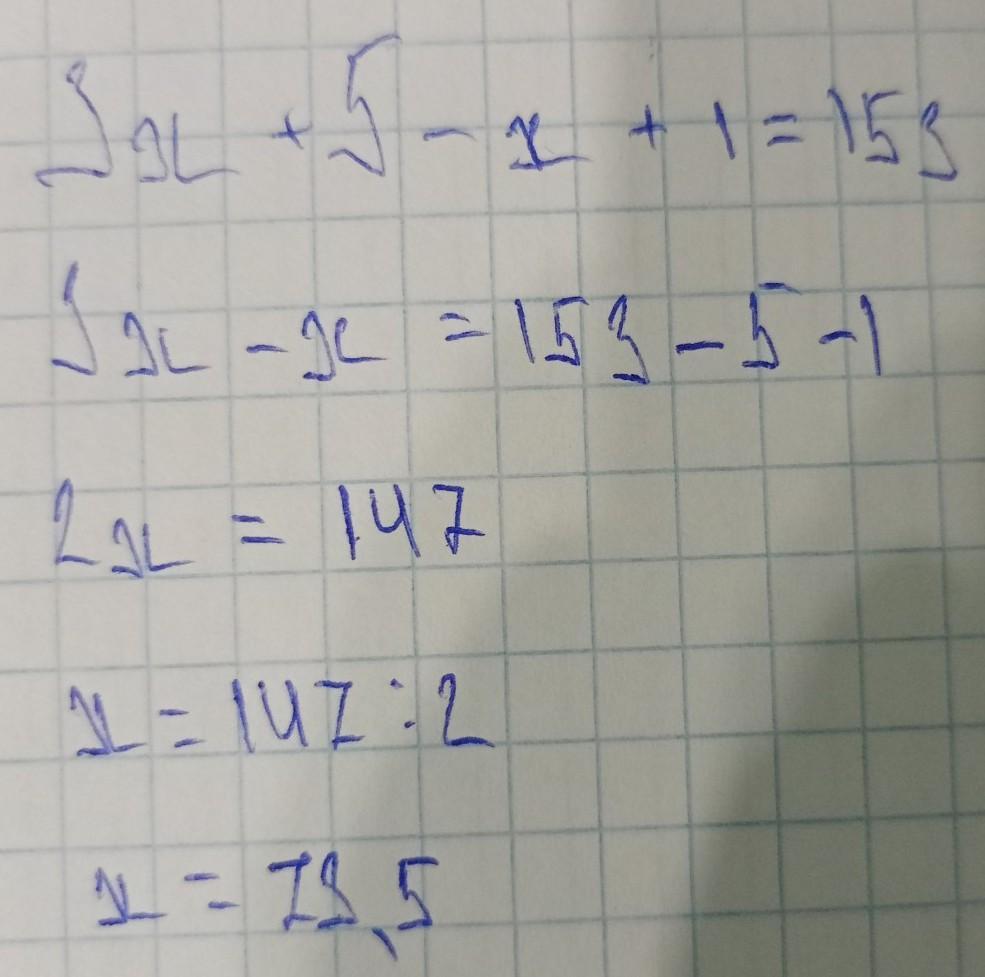 3x + 5 - x + 1 = 153
3x - x = 153 - 5 - 1
2x = 147
x = 147 : 2
x = 73,5